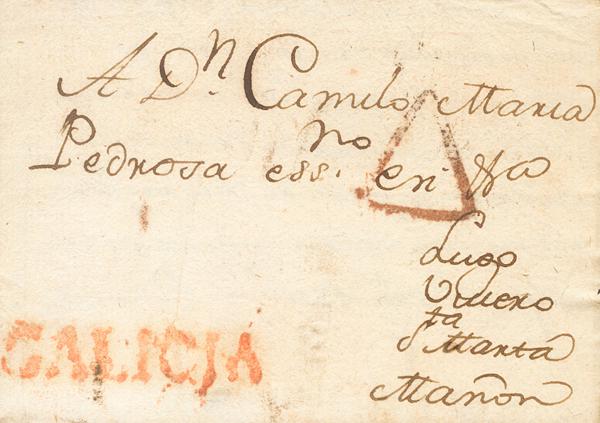 A Dn. Camilo Maria
Pedrosa essno. en
Lugo
Vivero
Sta Marta
Mañon
GALICIA